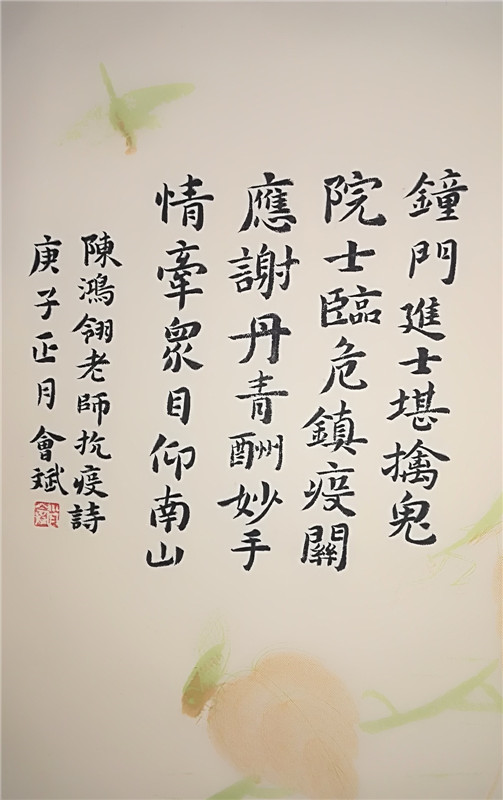 鐘門進士堪擒鬼
院士臨危鎮疫關
應謝丹青酬妙手
情牽眾目仰南山
陳鴻翎老師抗疫詩
庚子正月會斌